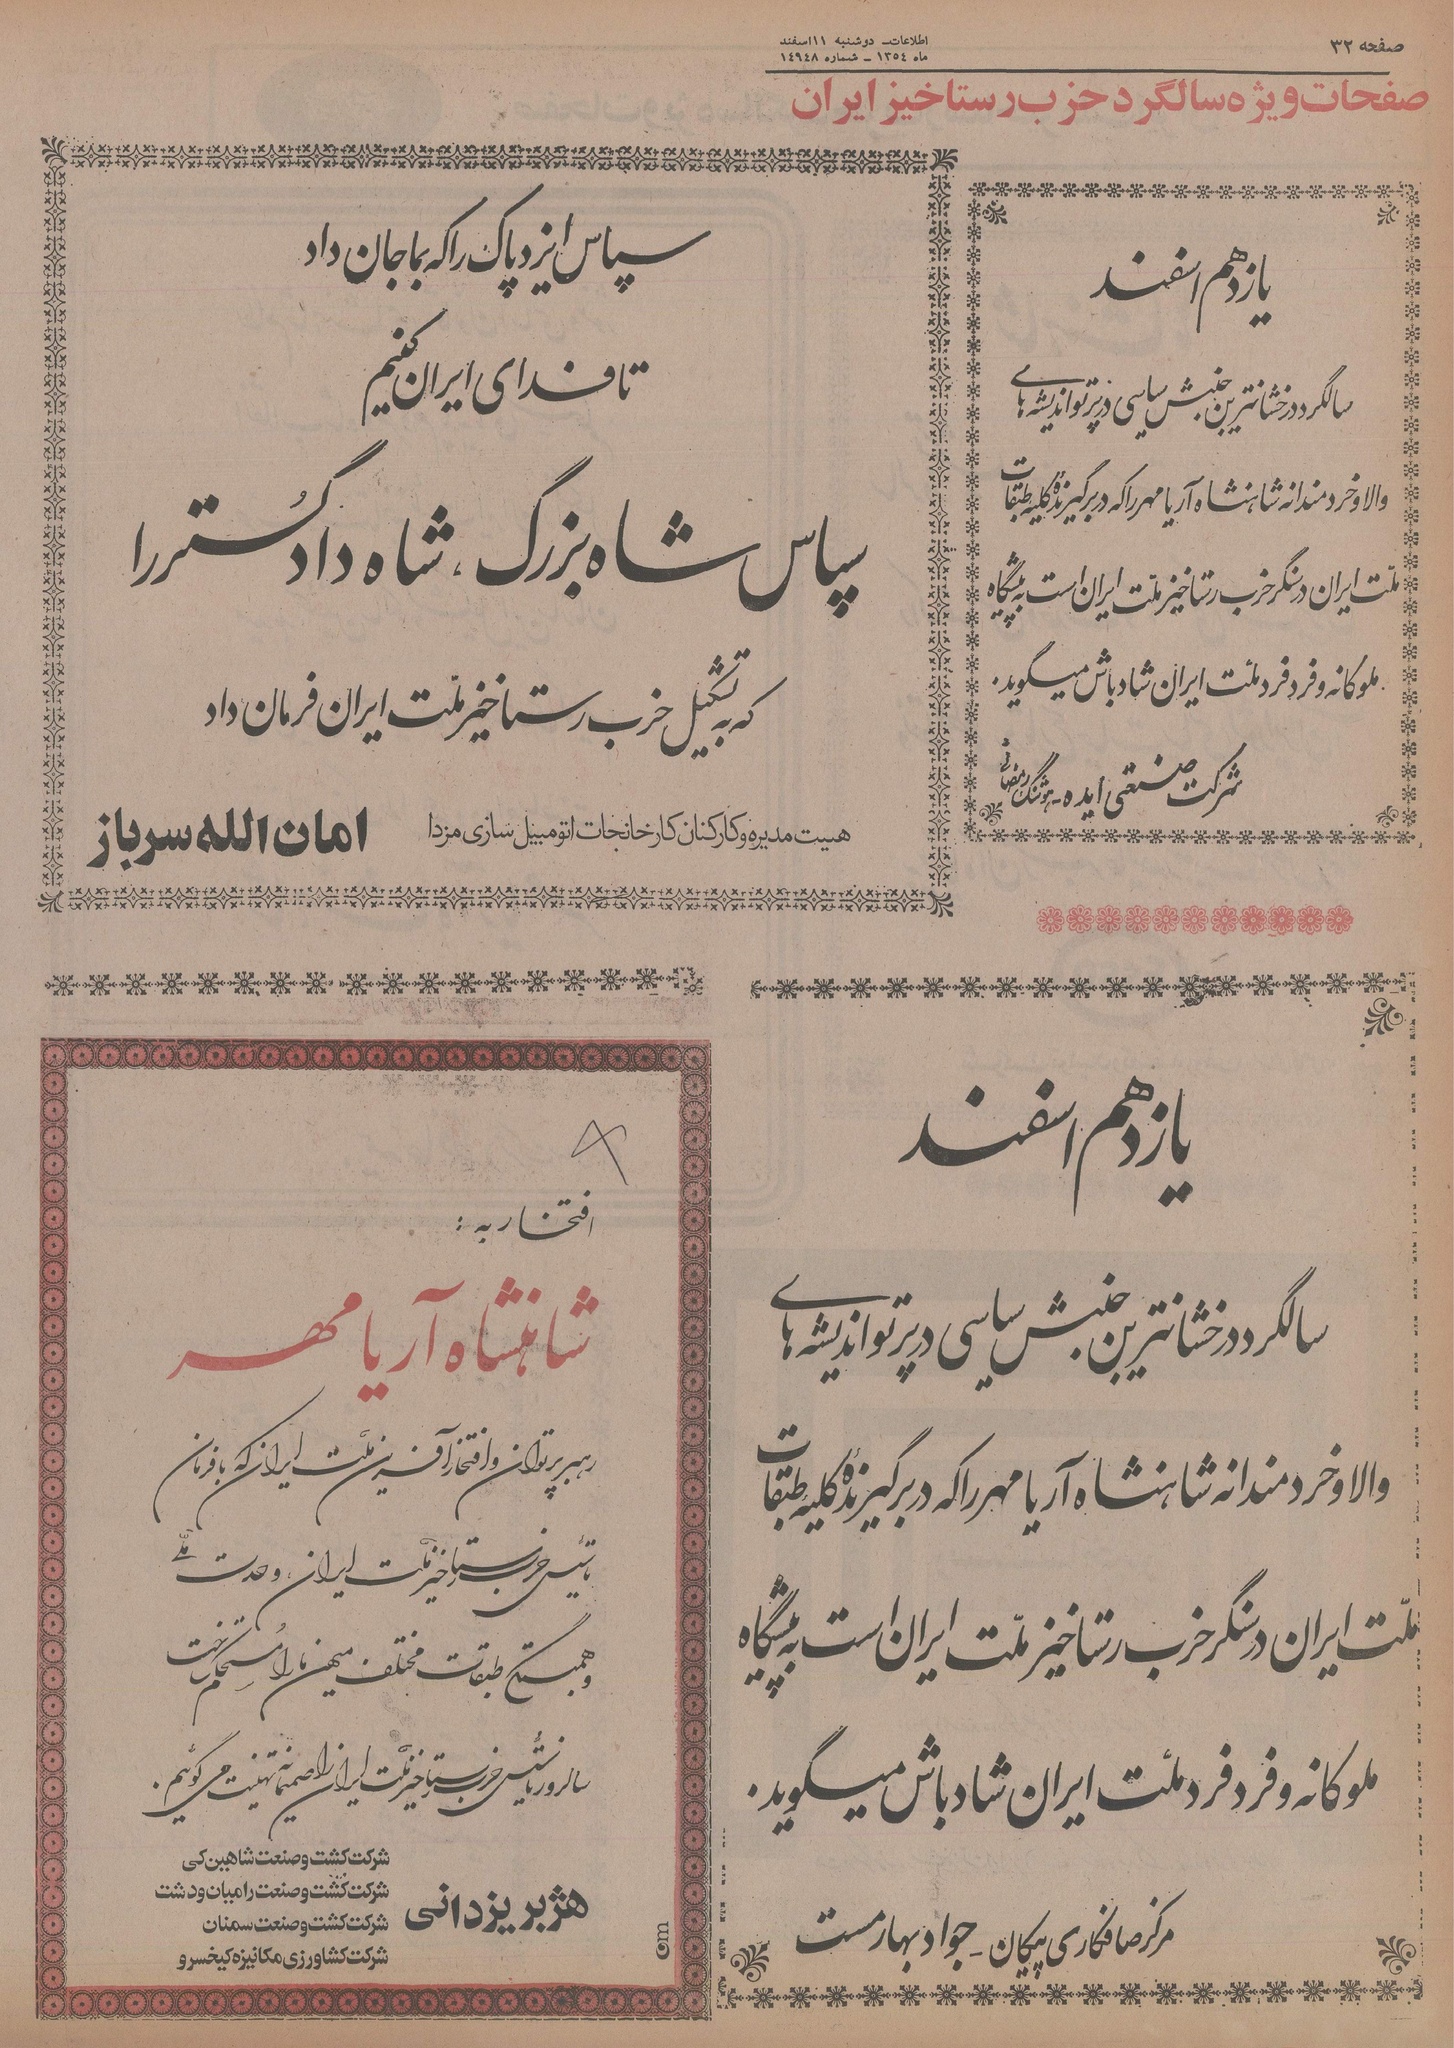 صفحه ۳۲
اطلاعات ـ دوشنبه ۱۱ اسفند
ماه ۱۳۵٤ ـ شماره ۱٤۹٤۸
صفحات ویژه سالگرد حزب رستاخیز ایران
یازدهم اسفند
سالگرد درخشانترین جنبش سیاسی در پرتو اندیشه های
والا و خردمندانه شاهنشاه آریامهر را که در برگیرندهٔ کلیه طبقات
ملّت ایران در سنگر حزب رستاخیز ملّت ایران است به پیشگاه
ملوکانه و فرد فرد ملّت ایران شادباش میگوید.
شرکت صنعتی ایده ـ هوشنگ رمضانی
سپاس ایزد پاک را که بما جان داد
تا فدای ایران کنیم
سپاس شاه بزرگ، شاه دادگُستر را
که به تشکیل حزب رستاخیز ملّت ایران فرمان داد
هییت مدیره و کارکنان کارخانجات اتومبیل سازی مزدا
امان الله سرباز
یازدهم اسفند
سالگرد درخشانترین جنبش سیاسی در پرتو اندیشه های
والا و خردمندانه شاهنشاه آریامهر را که در برگیرندهٔ کلیه طبقات
ملّت ایران در سنگر حزب رستاخیز ملّت ایران است به پیشگاه
ملوکانه و فرد فرد ملّت ایران شادباش میگوید.
مرکز صافکاری پیکان ـ جواد بهارمست
افتخار به:
شاهنشاه آریامهر
رهبر پرتوان و افتخارآفرین ملّت ایران که با فرمان
تأسیس حزب رستاخیز ملّت ایران، وحدت ملّی
و همبستگی طبقات مختلف میهن ما را مُستحکم ساخت
سالروز تأسیس حزب رستاخیز ملّت ایران را صمیمانه تهنیت می گوئیم.
هژبر یزدانی
شرکت کشت و صنعت شاهین کی
شرکت کشت و صنعت رامیان و دشت
شرکت کشت و صنعت سمنان
شرکت کشاورزی مکانیزه کیخسرو